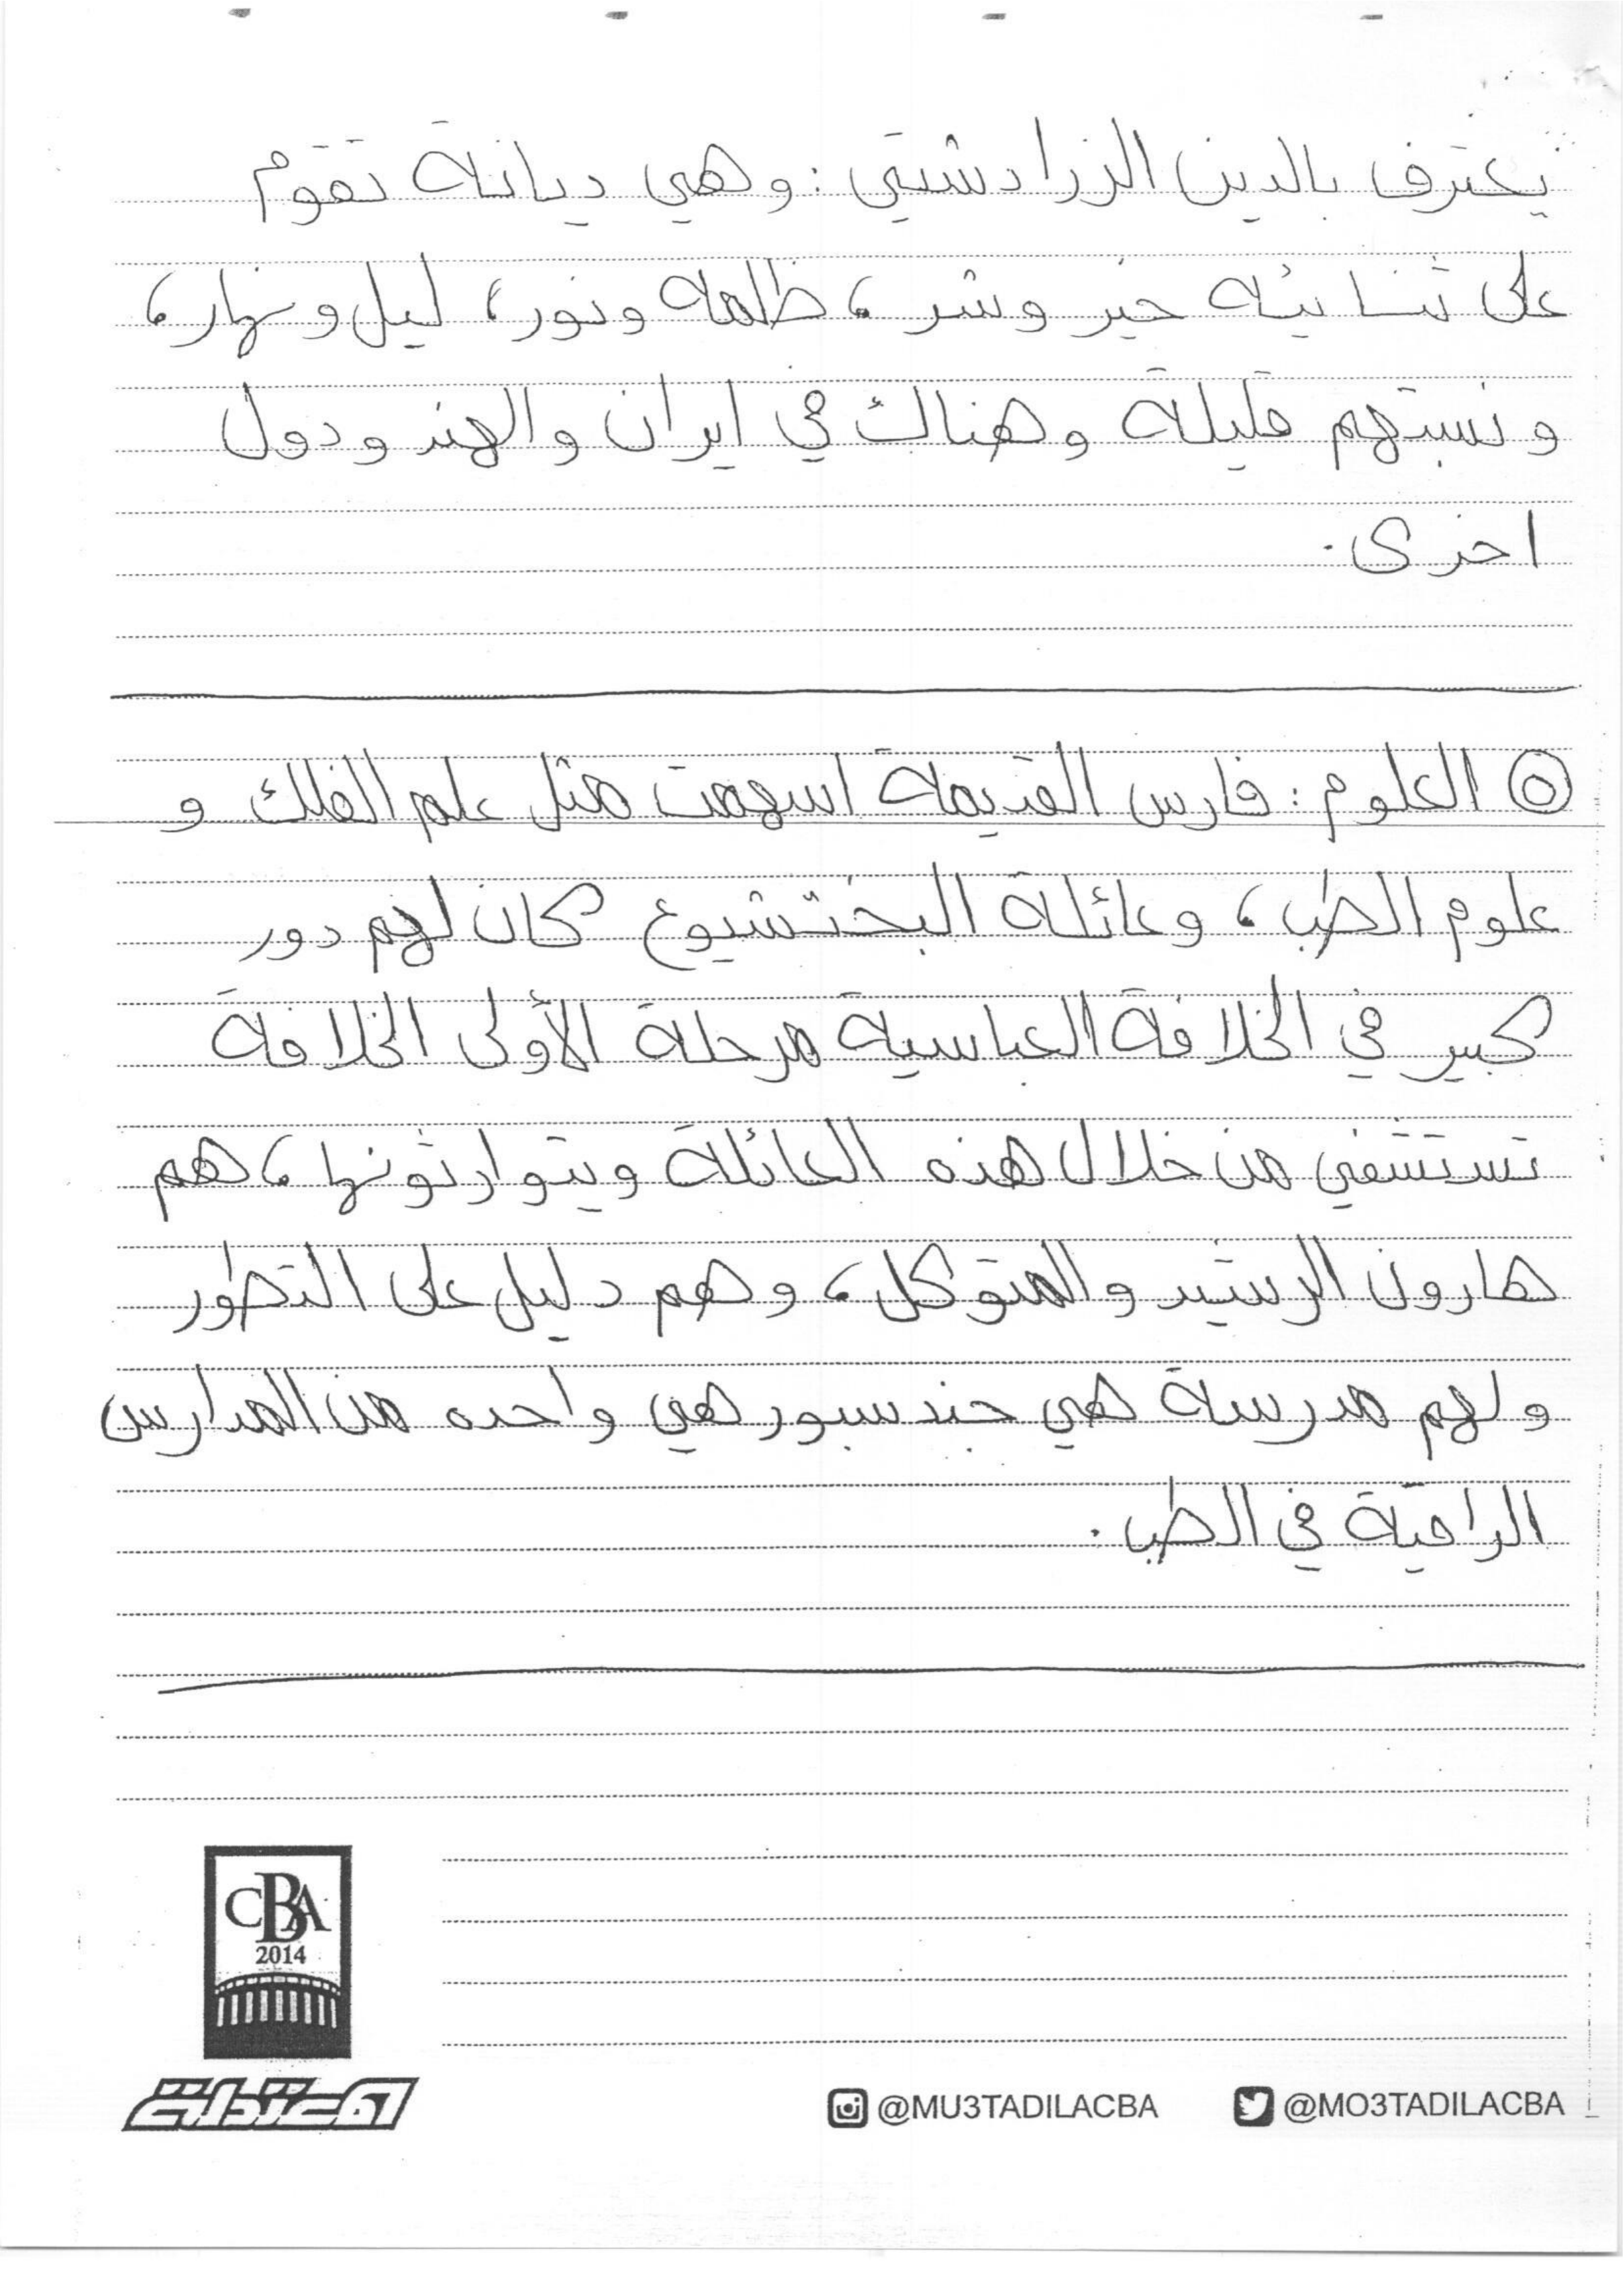 يعترف بالدين الزرادشتي : وهي ديانة تقوم
على ثنائيه خير وشر ، ظلمه ونور ، ليل ونهار ،
ونسبتهم قليلة وهناك في ايران والهند ودول
اخرى .
⑤ العلوم : فارس القديمة اسهمت مثل علم الفلك و
علوم الطب ، وعائلة البختشيوع كان لهم دور
كبير في الخلافة العباسية مرحلة الأولى الخلافة
تستشفي من خلال هذه العائلة ويتوارثونها ، هم
هارون الرشيد والمتوكل ، وهم دليل على التطور
ولهم مدرسة هي جندسبور هي واحده من المدارس
الراقية في الطب .
CBA
2014
المعتدلة
@MU3TADILACBA @MO3TADILACBA